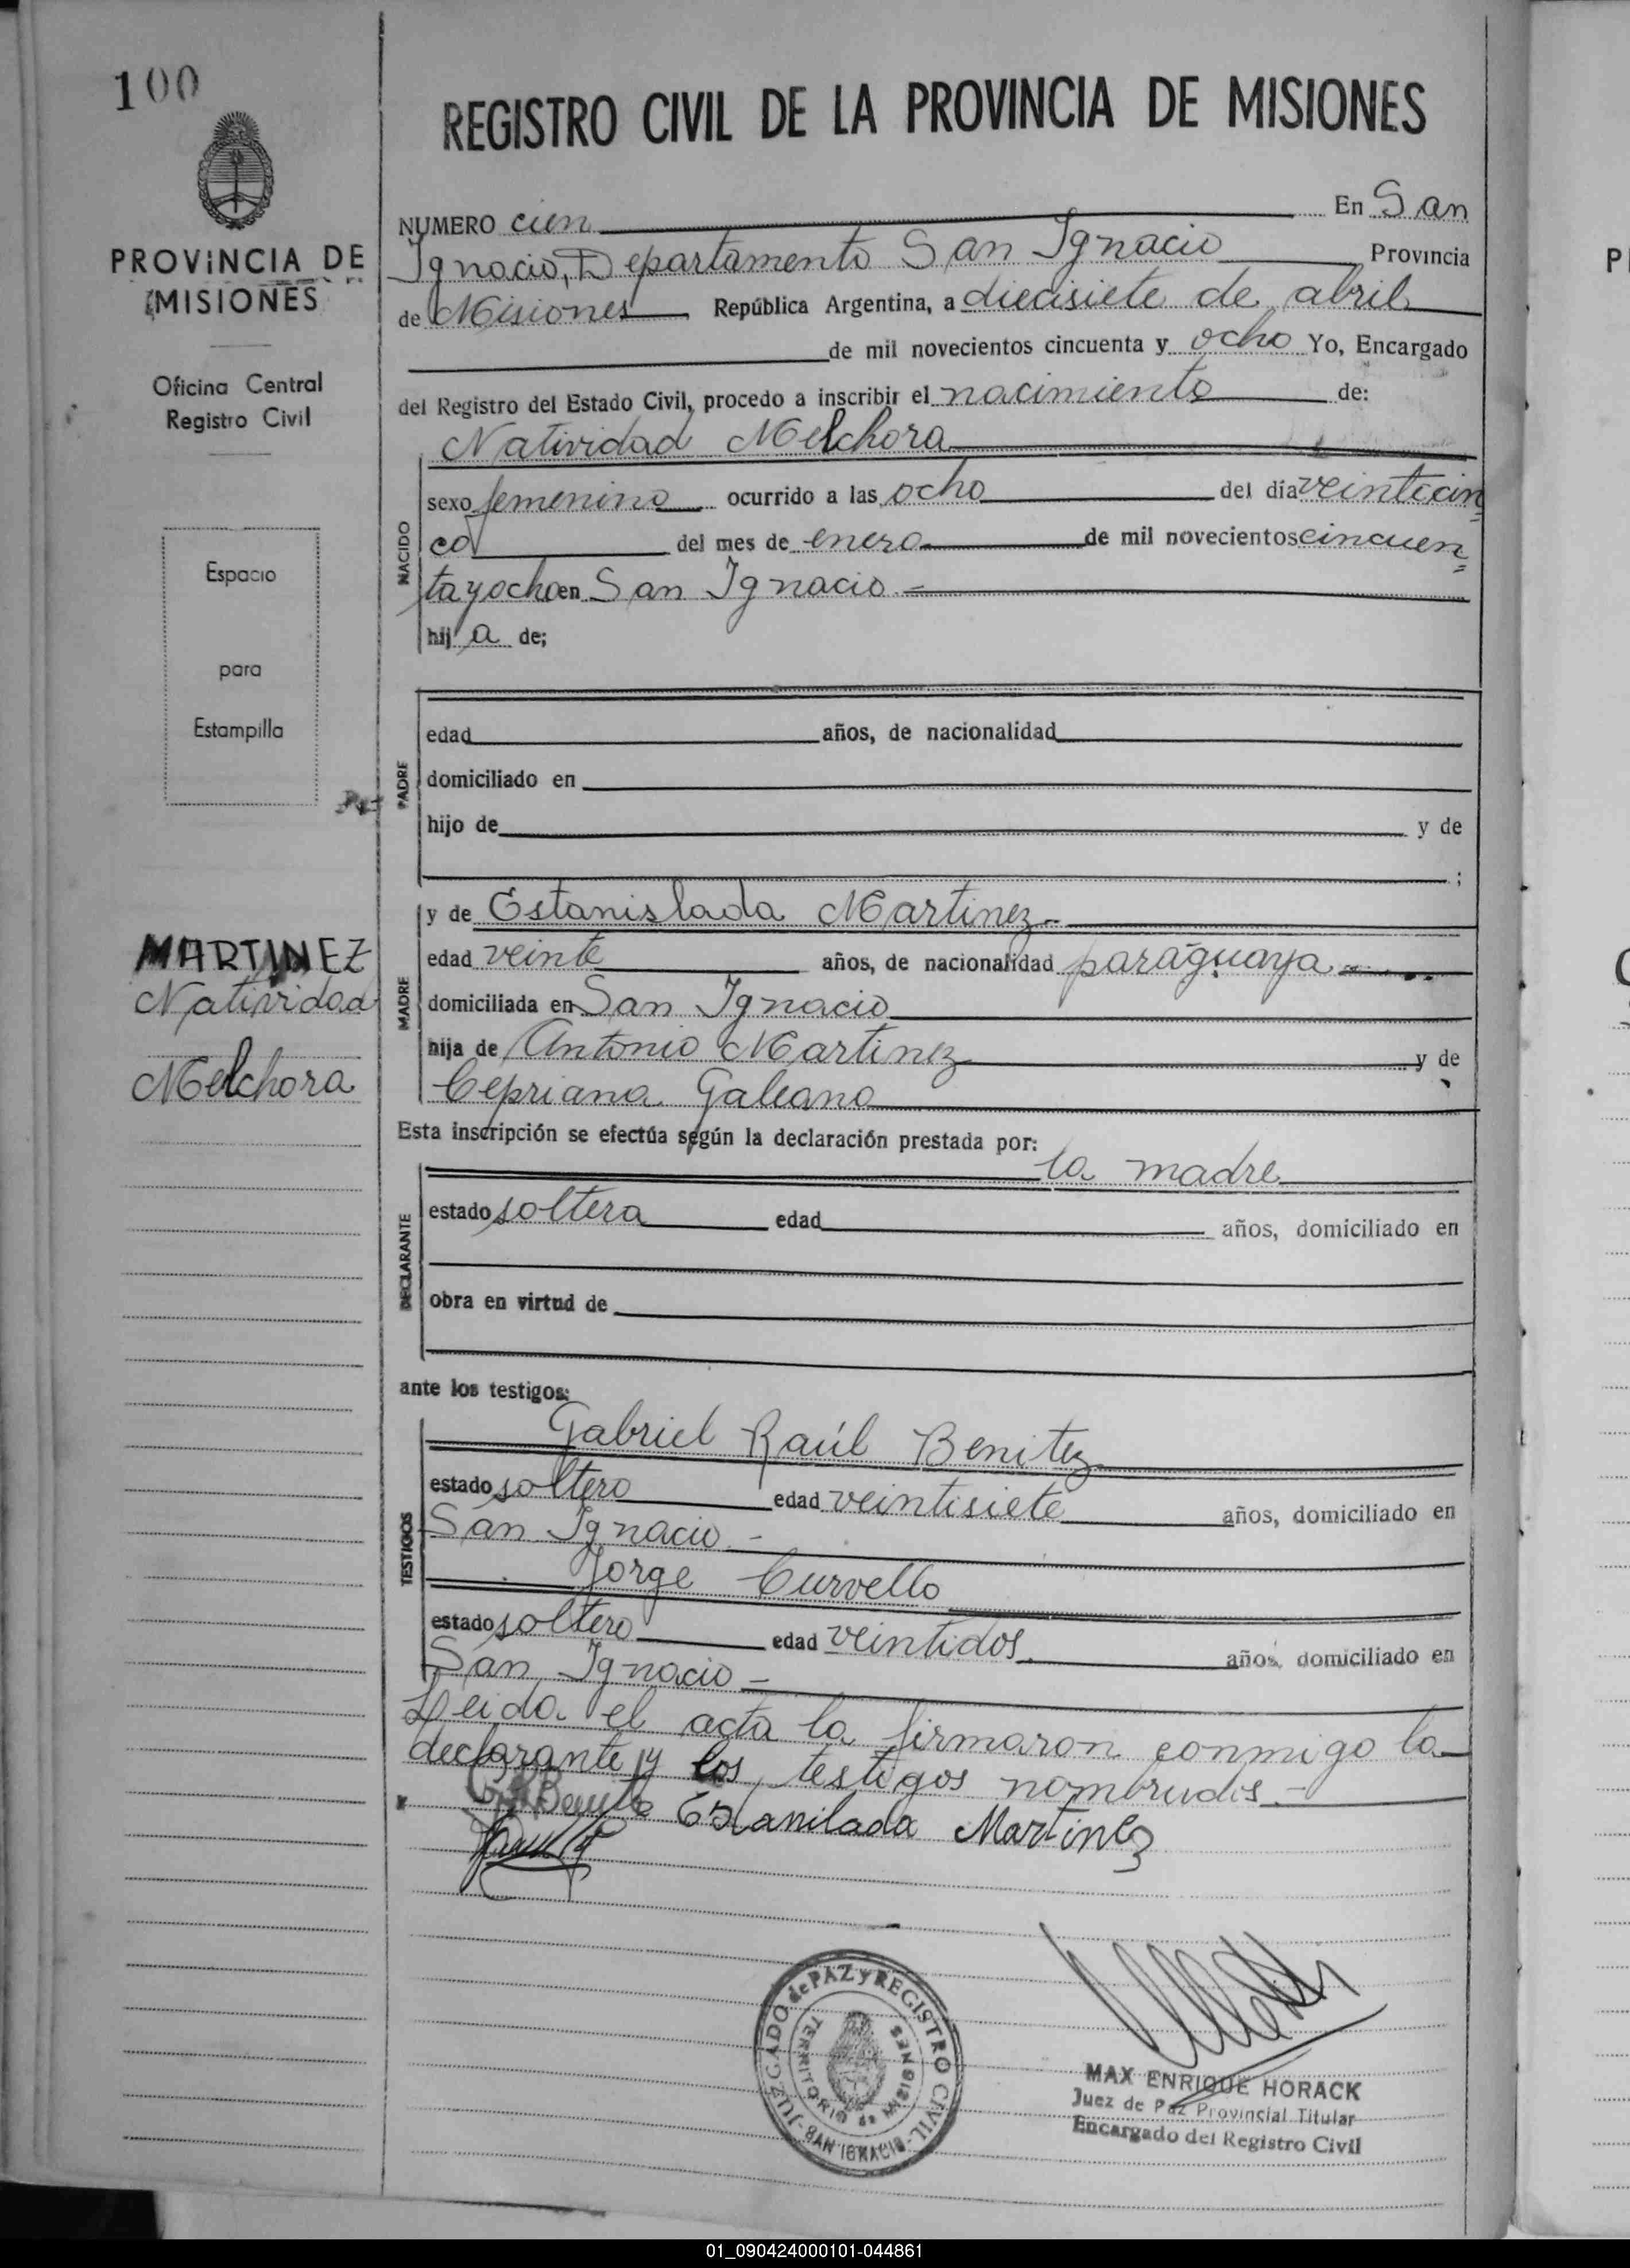 100
PROVINCIA DE
MISIONES
Oficina Central
Registro Civil
Espacio
para
Estampilla
MARTINEZ
Natividad
Melchora
REGISTRO CIVIL DE LA PROVINCIA DE MISIONES
NUMERO cien En San
Ignacio, Departamento San Ignacio Provincia
de Misiones República Argentina, a diecisiete de abril
de mil novecientos cincuenta y ocho Yo, Encargado
del Registro del Estado Civil, procedo a inscribir el nacimiento de:
Natividad Melchora
NACIDO
sexo femenino ocurrido a las ocho del día veinticin=
co del mes de enero de mil novecientos cincuen=
tayocho en San Ignacio.-
hij a de;
PADRE
edad años, de nacionalidad
domiciliado en
hijo de y de
;
MADRE
y de Estanislada Martinez.-
edad veinte años, de nacionalidad paraguaya.-
domiciliada en San Ignacio
hija de Antonio Martinez y de
Cepriana Galeano
Esta inscripción se efectúa según la declaración prestada por:
la madre
DECLARANTE
estado soltera edad años, domiciliado en
obra en virtud de
ante los testigos:
TESTIGOS
Gabriel Raúl Benitez
estado soltero edad veintisiete años, domiciliado en
San Ignacio.-
Jorge Curvello
estado soltero edad veintidos años, domiciliado en
San Ignacio-
Leida el acta la firmaron conmigo la
declarante y los testigos nombrados.-
Estanilada Martinez
JUZGADO de PAZ y REGISTRO CIVIL
-SAN IGNACIO-
TERRITORIO de MISIONES
MAX ENRIQUE HORACK
Juez de Paz Provincial Titular
Encargado del Registro Civil
01_090424000101-044861